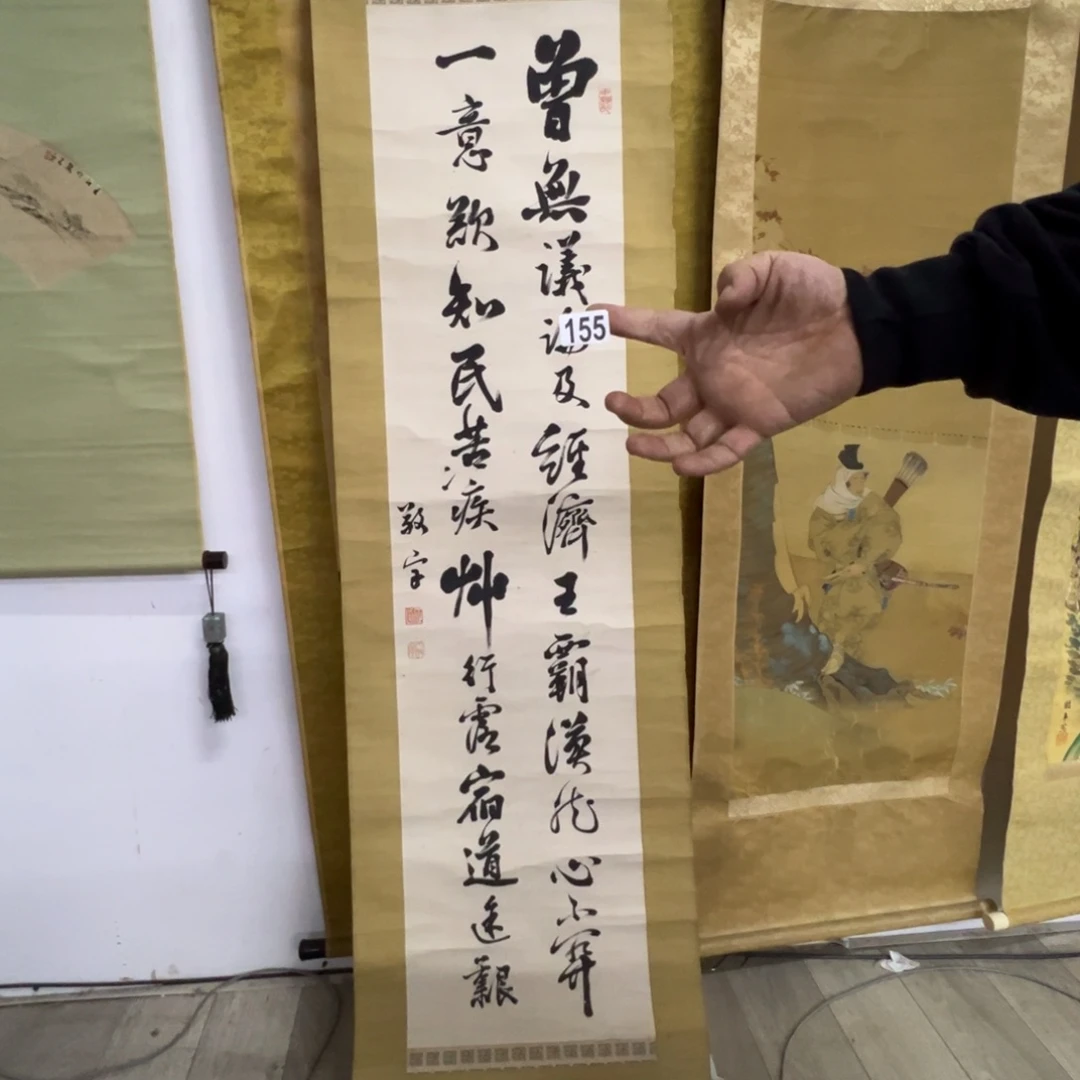 曾無議論及經濟王霸漠然心不關
一意欲知民苦疾艸行露宿道途艱
敬宇
155